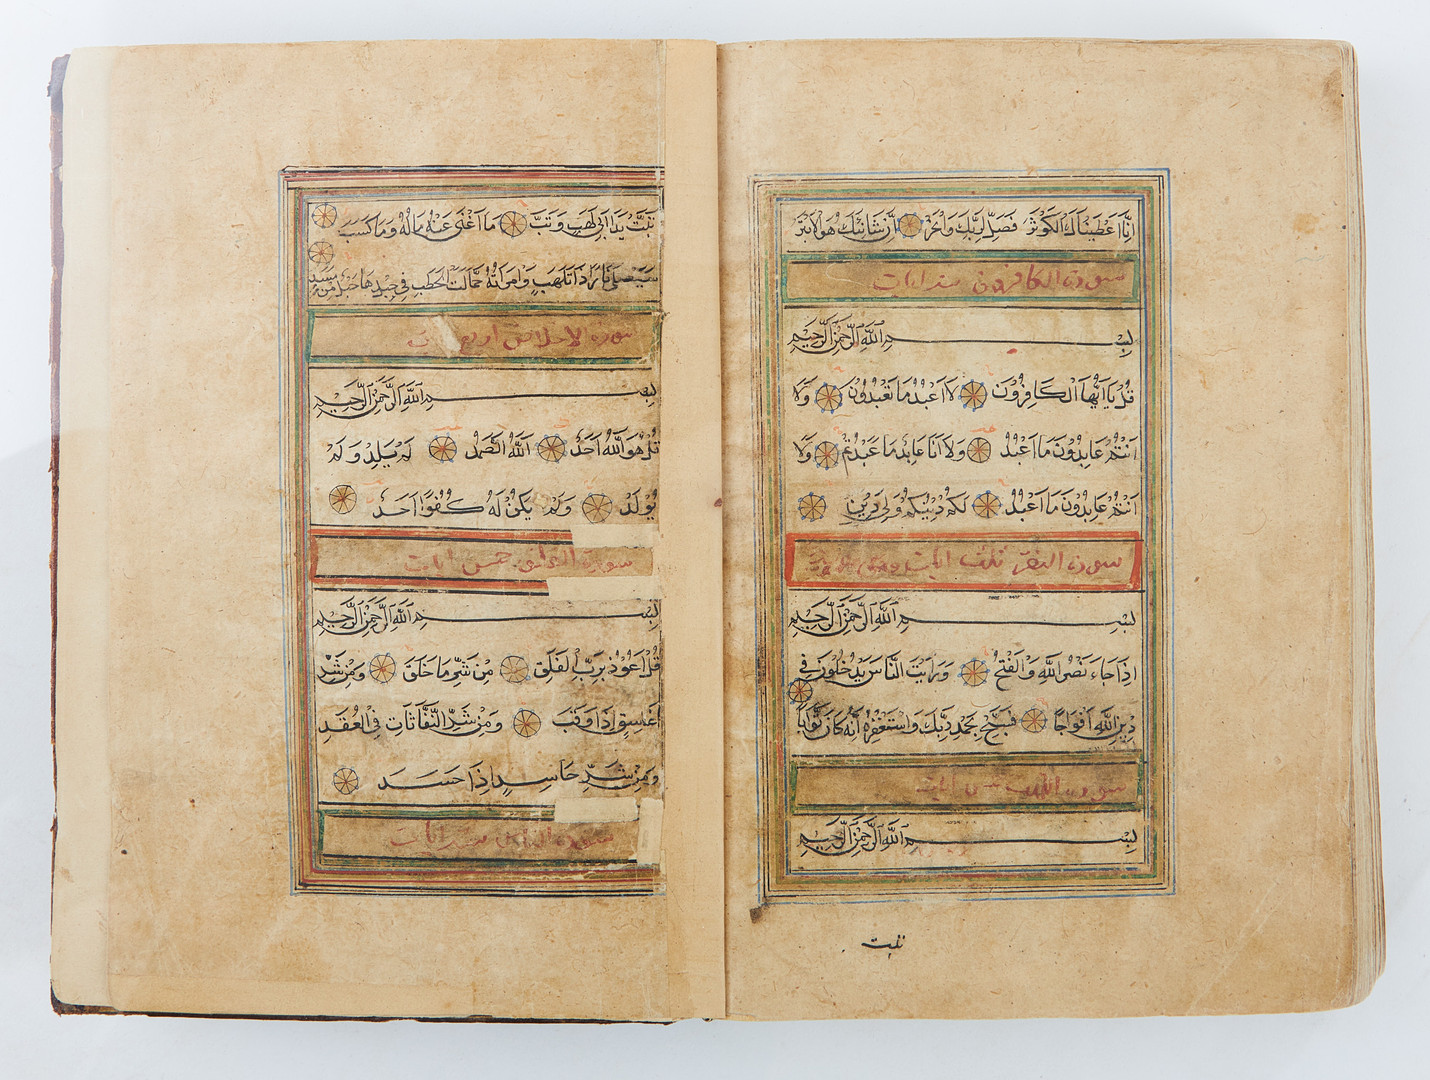 اِنَّا اَعْطَيْنَاكَ الْكَوْثَرَ فَصَلِّ لِرَبِّكَ وَانْحَرْ اِنَّ شَانِئَكَ هُوَ الْاَبْتَرُ
سورة الكافرون ست ايات
بِسْمِ اللّٰهِ الرَّحْمٰنِ الرَّحِيْمِ
قُلْ يَا اَيُّهَا الْكَافِرُوْنَ لَا اَعْبُدُ مَا تَعْبُدُوْنَ وَلَا
اَنْتُمْ عَابِدُوْنَ مَا اَعْبُدُ وَلَا اَنَا عَابِدٌ مَا عَبَدْتُمْ وَلَا
اَنْتُمْ عَابِدُوْنَ مَا اَعْبُدُ لَكُمْ دِيْنُكُمْ وَلِيَ دِيْنِ
سورة النصر ثلث ايات
بِسْمِ اللّٰهِ الرَّحْمٰنِ الرَّحِيْمِ
اِذَا جَاءَ نَصْرُ اللّٰهِ وَالْفَتْحُ وَرَاَيْتَ النَّاسَ يَدْخُلُوْنَ فِي
دِيْنِ اللّٰهِ اَفْوَاجًا فَسَبِّحْ بِحَمْدِ رَبِّكَ وَاسْتَغْفِرْهُ اِنَّهُ كَانَ تَوَّابًا
سورة اللهب خمس ايات
بِسْمِ اللّٰهِ الرَّحْمٰنِ الرَّحِيْمِ
تبت
تَبَّتْ يَدَا اَبِيْ لَهَبٍ وَتَبَّ مَا اَغْنٰى عَنْهُ مَالُهُ وَمَا كَسَبَ
سَيَصْلٰى نَارًا ذَاتَ لَهَبٍ وَامْرَاَتُهُ حَمَّالَةَ الْحَطَبِ فِيْ جِيْدِهَا حَبْلٌ مِنْ مَسَدٍ
سورة الاخلاص اربع ايات
بِسْمِ اللّٰهِ الرَّحْمٰنِ الرَّحِيْمِ
قُلْ هُوَ اللّٰهُ اَحَدٌ اَللّٰهُ الصَّمَدُ لَمْ يَلِدْ وَلَمْ
يُوْلَدْ وَلَمْ يَكُنْ لَهُ كُفُوًا اَحَدٌ
سورة الفلق خمس ايات
بِسْمِ اللّٰهِ الرَّحْمٰنِ الرَّحِيْمِ
قُلْ اَعُوْذُ بِرَبِّ الْفَلَقِ مِنْ شَرِّ مَا خَلَقَ وَمِنْ شَرِّ
غَاسِقٍ اِذَا وَقَبَ وَمِنْ شَرِّ النَّفَّاثَاتِ فِي الْعُقَدِ
وَمِنْ شَرِّ حَاسِدٍ اِذَا حَسَدَ
سورة الناس ست ايات